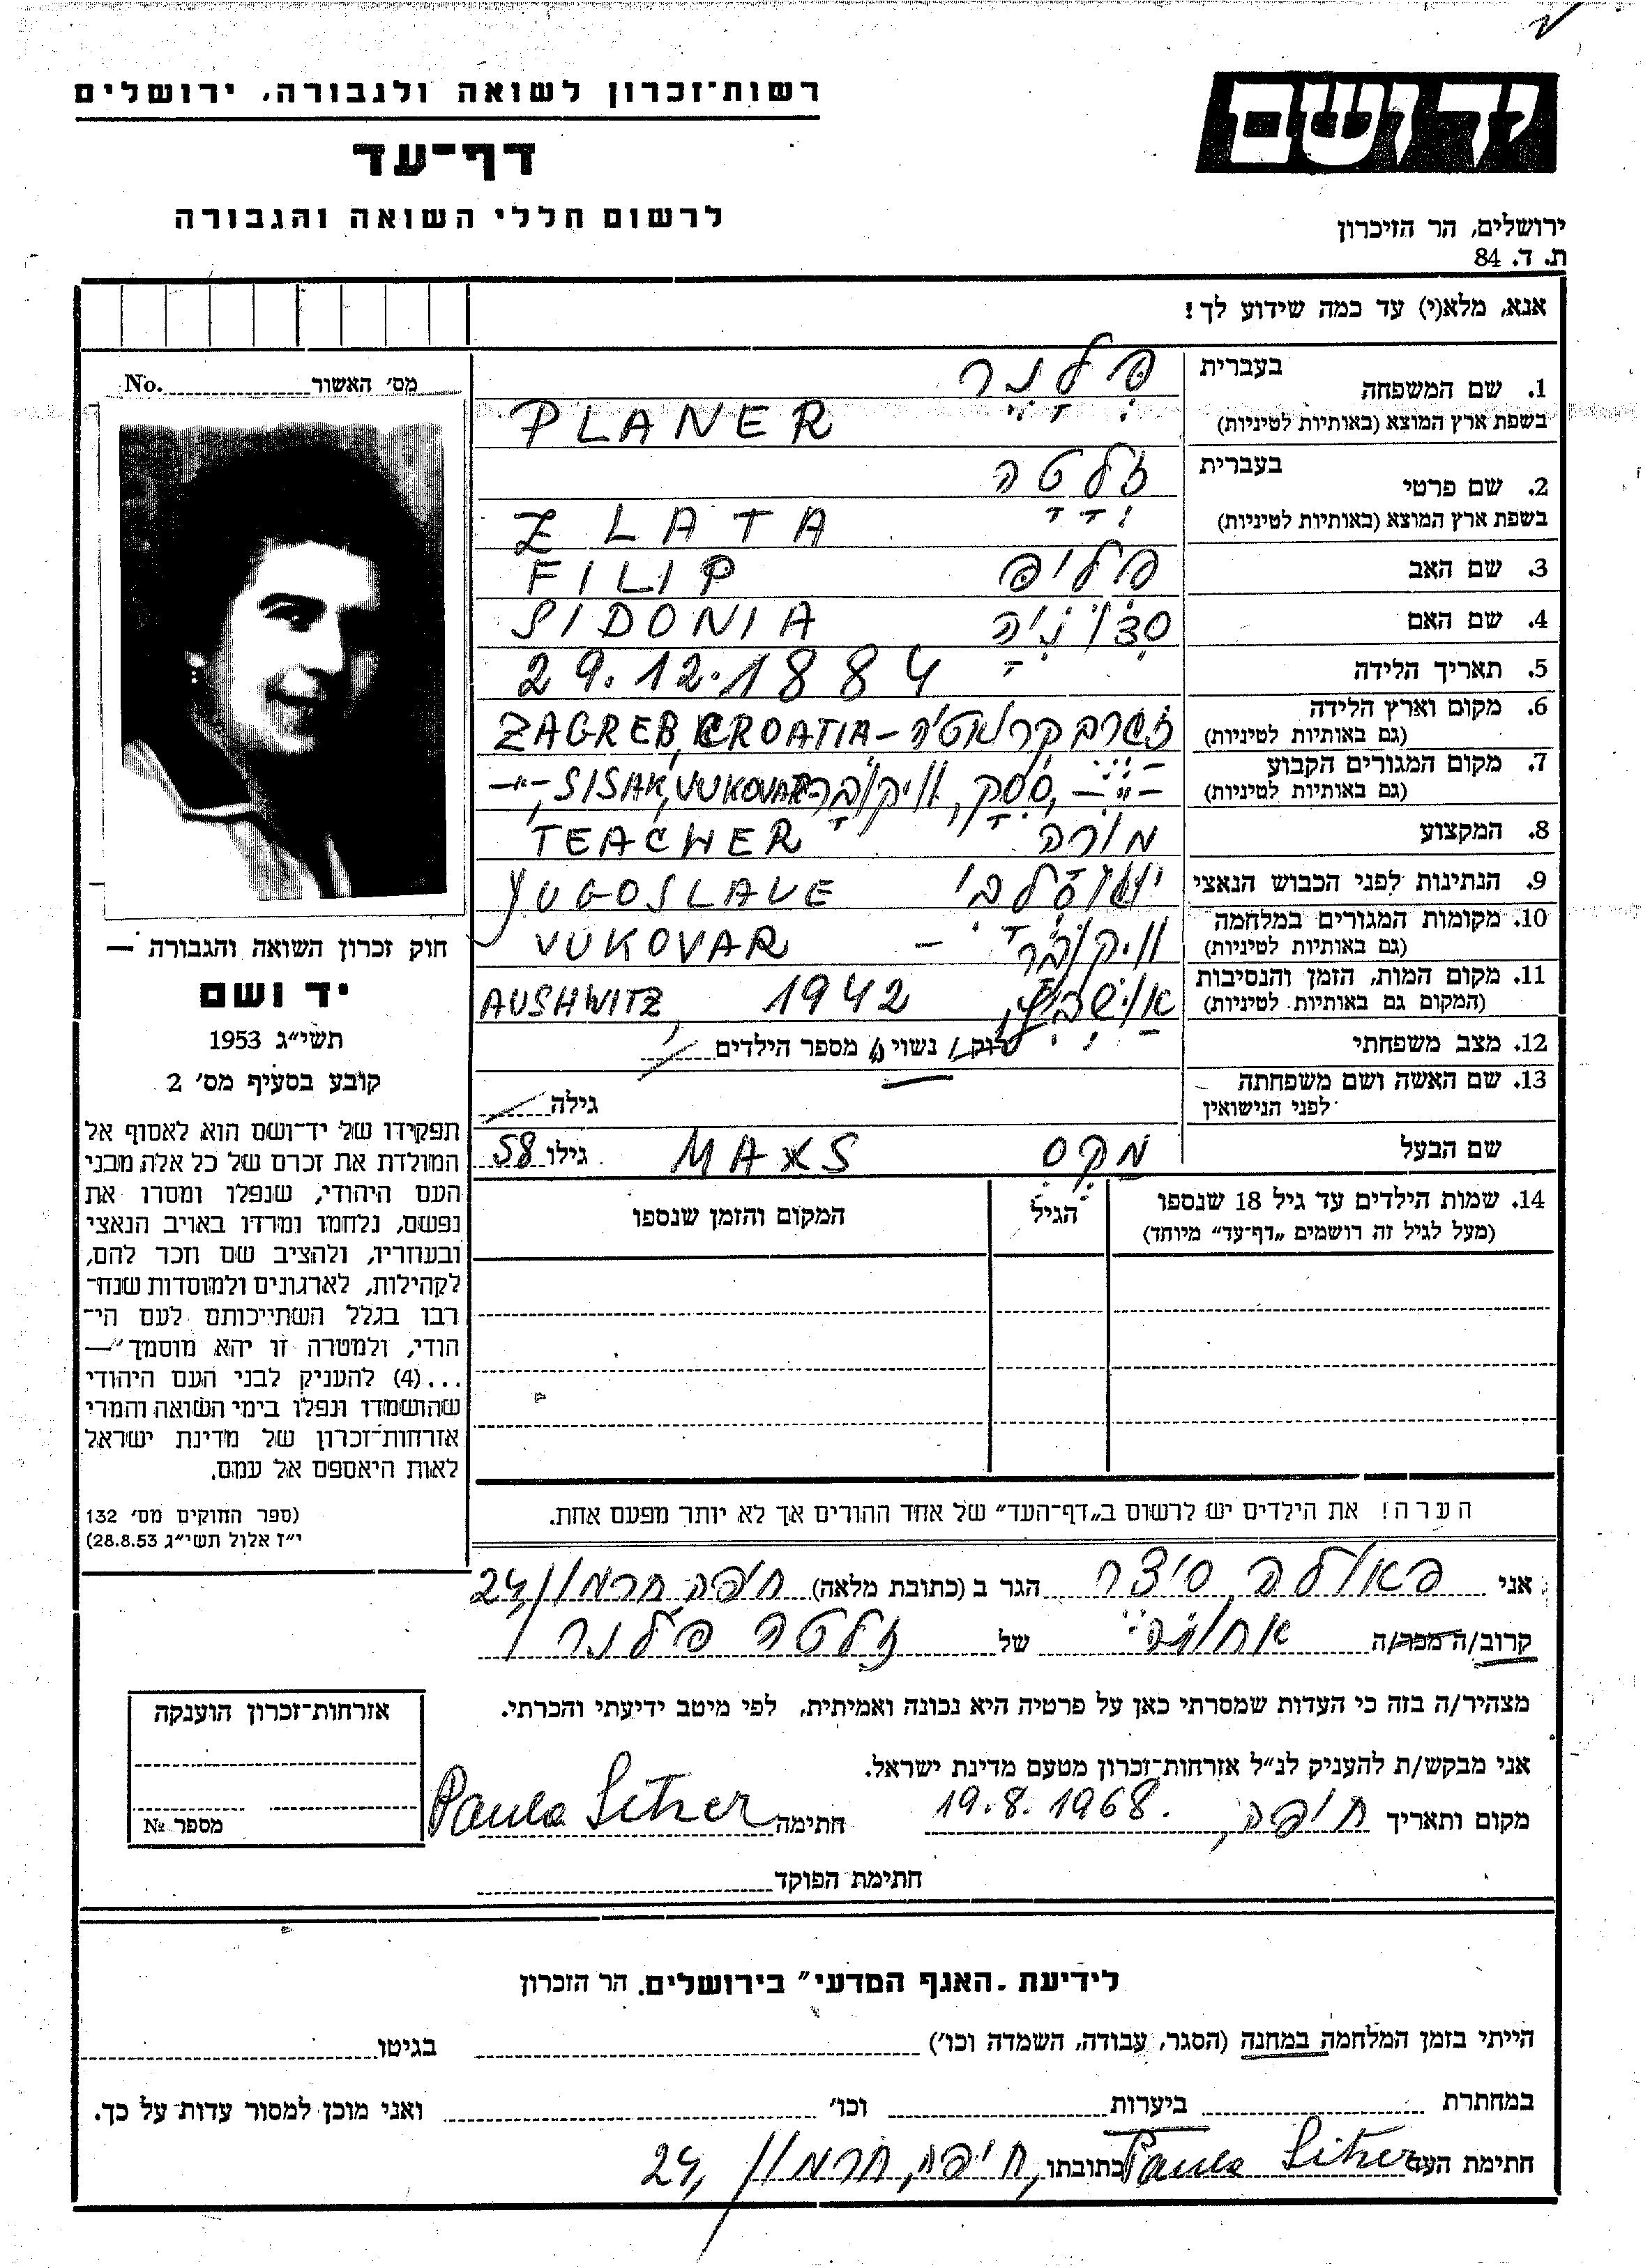 רשות־זכרון לשואה ולגבורה, ירושלים
דף־עד
לרשום חללי השואה והגבורה
יד ושם
ירושלים, הר הזיכרון
ת. ד. 84
אנא, מלא(י) עד כמה שידוע לך!
No. מס׳ האשור
1. שם המשפחה בעברית פלנר
בשפת ארץ המוצא (באותיות לטיניות) PLANER
2. שם פרטי בעברית זלטה
בשפת ארץ המוצא (באותיות לטיניות) ZLATA
3. שם האב פליפ FILIP
4. שם האם סדוניה SIDONIA
5. תאריך הלידה 29.12.1884
6. מקום וארץ הלידה זגרב קרואטיה – ZAGREB, CROATIA
(גם באותיות לטיניות)
7. מקום המגורים הקבוע –"–, ססק, וויקובר –"–, SISAK, VUKOVAR
(גם באותיות לטיניות)
8. המקצוע מורה TEACHER
9. הנתינות לפני הכבוש הנאצי יוגוסלבי YUGOSLAVE
10. מקומות המגורים במלחמה וויקובר – VUKOVAR
(גם באותיות לטיניות)
11. מקום המות, הזמן והנסיבות אוישביץ, 1942 AUSHWITZ,
(המקום גם באותיות לטיניות)
12. מצב משפחתי רווק/ נשוי/ה מספר הילדים
13. שם האשה ושם משפחתה
לפני הנישואין גילה
שם הבעל מקס MAXS גילו 58
14. שמות הילדים עד גיל 18 שנספו הגיל המקום והזמן שנספו
(מעל לגיל זה רושמים „דף־עד״ מיוחד)
חוק זכרון השואה והגבורה —
יד ושם
תשי״ג 1953
קובע בסעיף מס׳ 2
תפקידו של יד־ושם הוא לאסוף אל
המולדת את זכרם של כל אלה מבני
העם היהודי, שנפלו ומסרו את
נפשם, נלחמו ומרדו באויב הנאצי
ובעוזריו, ולהציב שם וזכר להם,
לקהילות, לארגונים ולמוסדות שנח־
רבו בגלל השתייכותם לעם הי־
הודי, ולמטרה זו יהא מוסמך״ —
...(4) להעניק לבני העם היהודי
שהושמדו ונפלו בימי השואה והמרי
אזרחות־זכרון של מדינת ישראל
לאות היאספם אל עמם.
(ספר החוקים מס׳ 132
י״ז אלול תשי״ג 28.8.53)
הערה! את הילדים יש לרשום ב„דף־העד״ של אחד ההורים אך לא יותר מפעם אחת.
אני פאולה סיצר הגר ב (כתובת מלאה) חיפה, חרמון 24,
קרוב/ה מכר/ה אחות של זלטה פלנר
מצהיר/ה בזה כי העדות שמסרתי כאן על פרטיה היא נכונה ואמיתית, לפי מיטב ידיעתי והכרתי.
אני מבקש/ת להעניק לנ״ל אזרחות־זכרון מטעם מדינת ישראל.
מקום ותאריך חיפה, 19.8.1968. חתימה Paula Sitzer
חתימת הפוקד
אזרחות־זכרון הוענקה
מספר №
לידיעת „האגף המדעי״ בירושלים, הר הזכרון
הייתי בזמן המלחמה במחנה (הסגר, עבודה, השמדה וכו׳) בגיטו
במחתרת ביערות וכו׳ ואני מוכן למסור עדות על כך.
חתימת העד Paula Sitzer כתובתו, חיפה, חרמון 24,